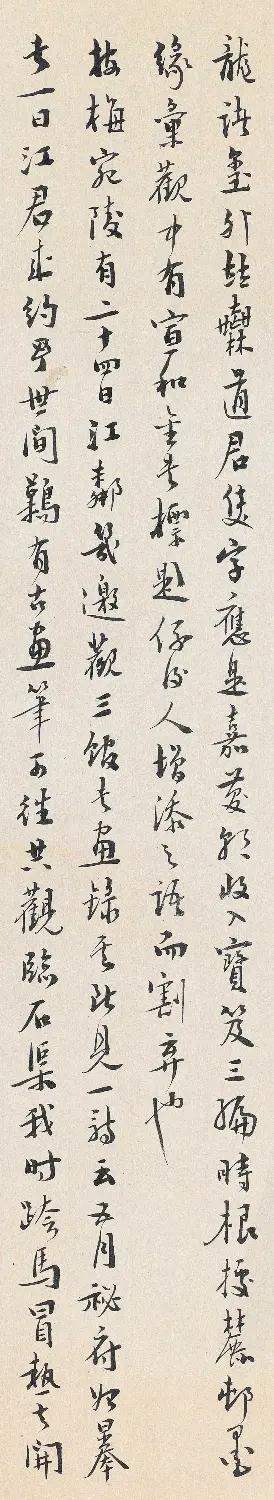 龍諸璽外並無道君隻字應是嘉慶朝收入寶笈三編時根據麓邨墨
緣彙觀中有宣和金書標題係後人增添之語而割棄也
按梅宛陵有二十四日江鄰幾邀觀三館書畫錄其所見一詩云五月祕府始暴
書一日江君來約予世間難有古畫筆可往共觀臨石渠我時跨馬冒熱去開